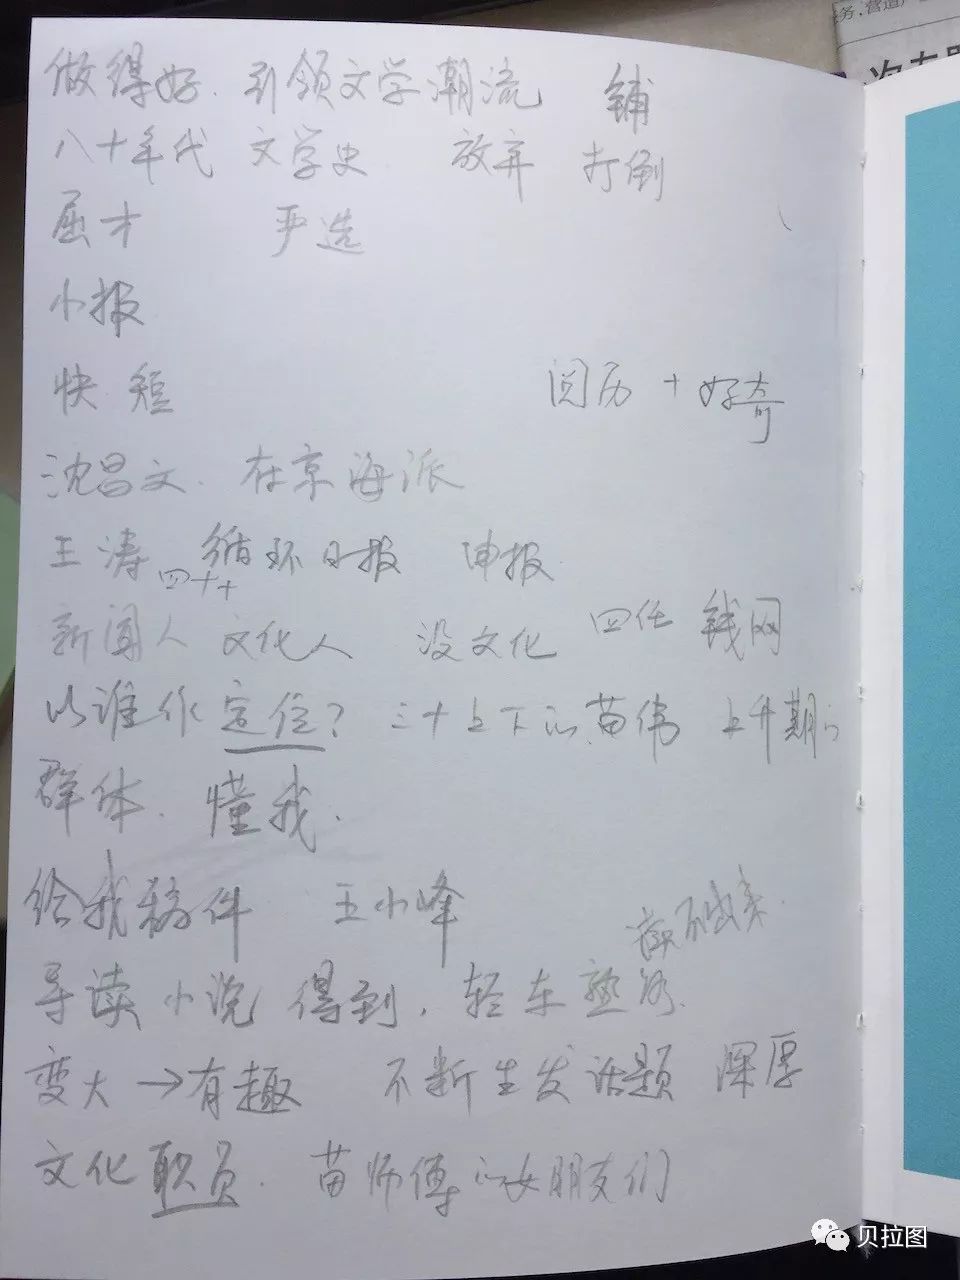 务,营造
做得好. 引领文学潮流 铺
八十年代 文学史 放弃 打倒
屈才 严选
小报
快 短 阅历 + 好奇
沈昌文. 在京海派
王涛 循环日报 申报
四十+
新闻人 文化人 没文化 四任 钱网
以谁作定位? 三十上下的苗伟 上升期的
群体. 懂我.
给我稿件 王小峰
导读小说 得到. 轻车熟路.
变大→有趣 不断生发话题 深厚
文化职员. 苗师傅的女朋友们
贝拉图